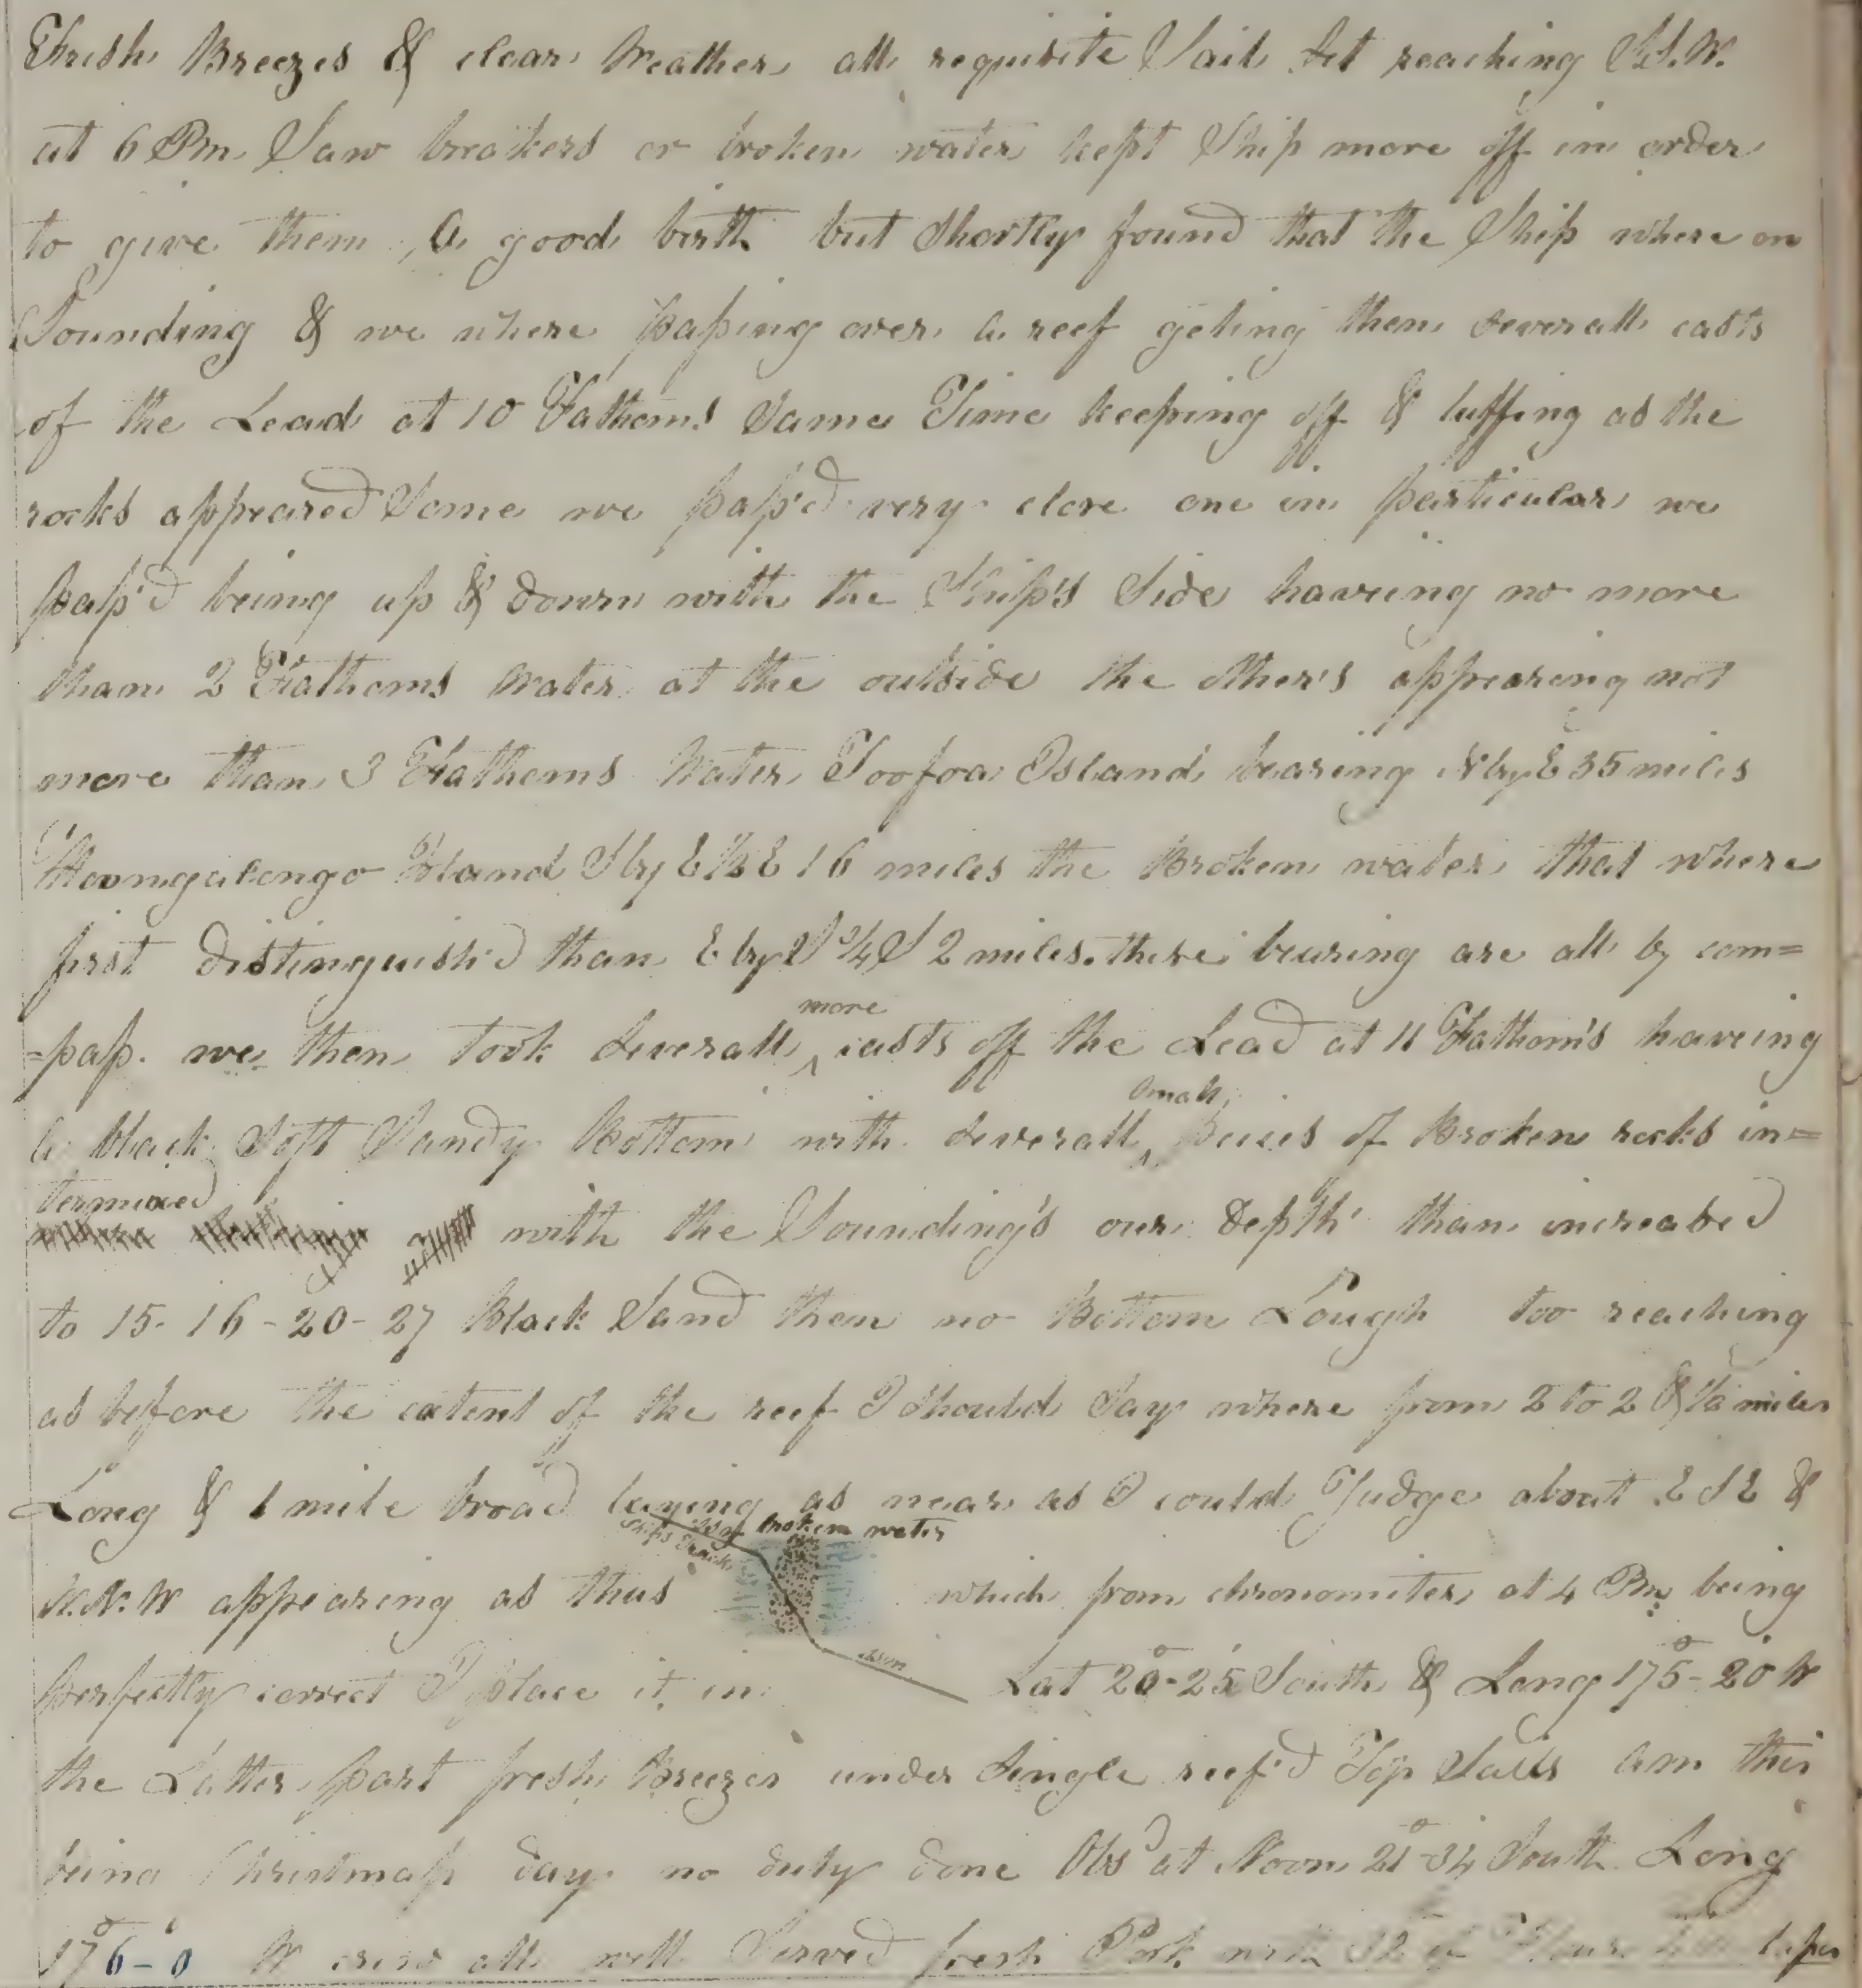 Fresh Breezes & clear Weather all requisite Sail Set reaching S.S.W.
at 6 Pm Saw breakers or broken water kept Ship more off in order
to give them a good birth but Shortly found that the Ship where on
Sounding & we where paßing over a reef geting then severall casts
of the Lead at 10 Fathoms Same Time keeping off & luffing as the
rocks appeared Some we paß'd very close one in particular we
paß'd being up & down with the Ship's Side haveing no more
than 2 Fathoms Water at the outside the other's appearing not
more than 3 Fathoms Water Toofoa Island bearing N by E 35 miles
Island S by E ½ E 16 miles the Broken water that where
first distinguish'd than E by S ¾ S 2 miles. these bearing are all by com=
=paß. we then took Severall more casts off the Lead at 11 Fathom's haveing
a black Soft Sandy Bottom with Severall Small peices of Broken rocks in=
termixed with the Sounding's our depth than increased
to 15-16-20-27 Black Sand then no Bottom Lough too reaching
as before the extent of the reef I should Say where from 2 to 2 & ½ miles
Long & 1 mile broad laying as near as I could Judge about E S E &
Ships Track broken water
W.N.W appearing as thus which from chronometer at 4 Pm being
perfectly correct I place it in Lat 20°-25' South & Long 175°-20 W
the Latter part fresh Breezes under Single reef'd Top Sails am this
being Christmaß day no duty done Obsd at Noon 21°-34 South Long
176°-0' W crew all well Served fresh Pork